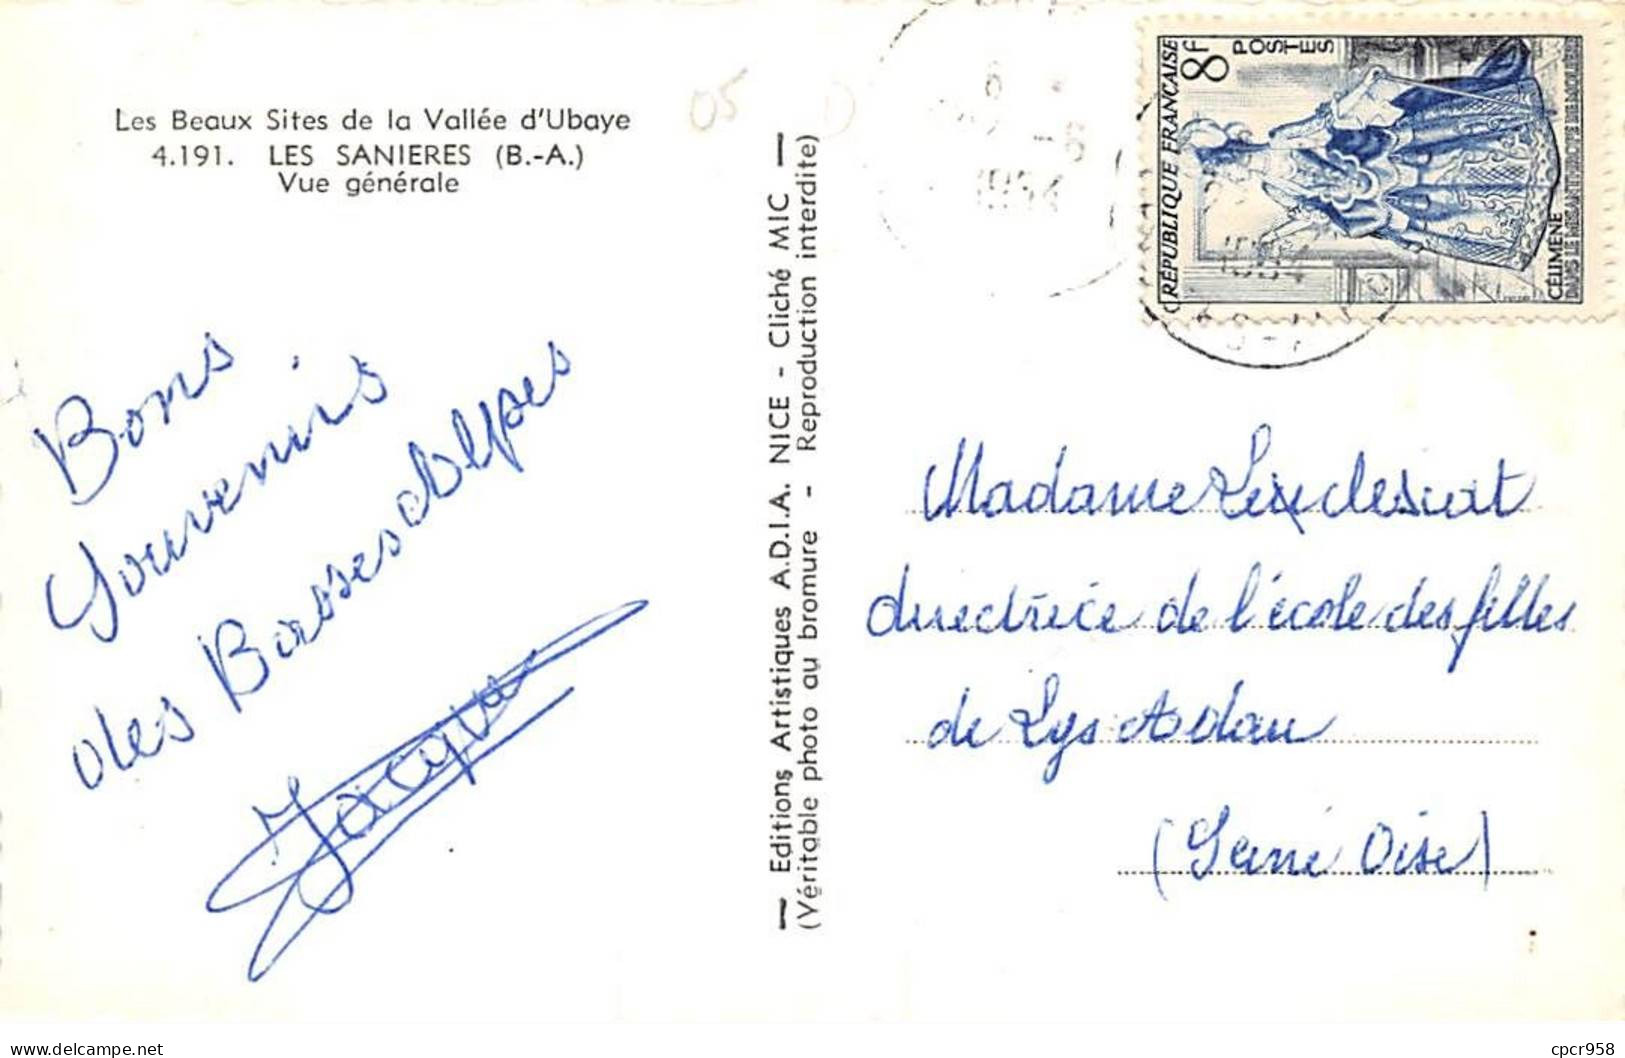 Les Beaux Sites de la Vallée d'Ubaye
4.191. LES SANIERES (B.-A.)
Vue générale
05
Bons
Souvenirs
des Basses Alpes
Jacques
— Editions Artistiques A.D.I.A. NICE - Cliché MIC —
(Véritable photo au bromure - Reproduction interdite)
6 -6
1954
1954
RÉPUBLIQUE FRANÇAISE
8F
POSTES
CÉLIMÈNE
DANS LE MISANTHROPE
Madame
directrice de l'école des filles
de Lys Adam
(Seine Oise)
cpcr958